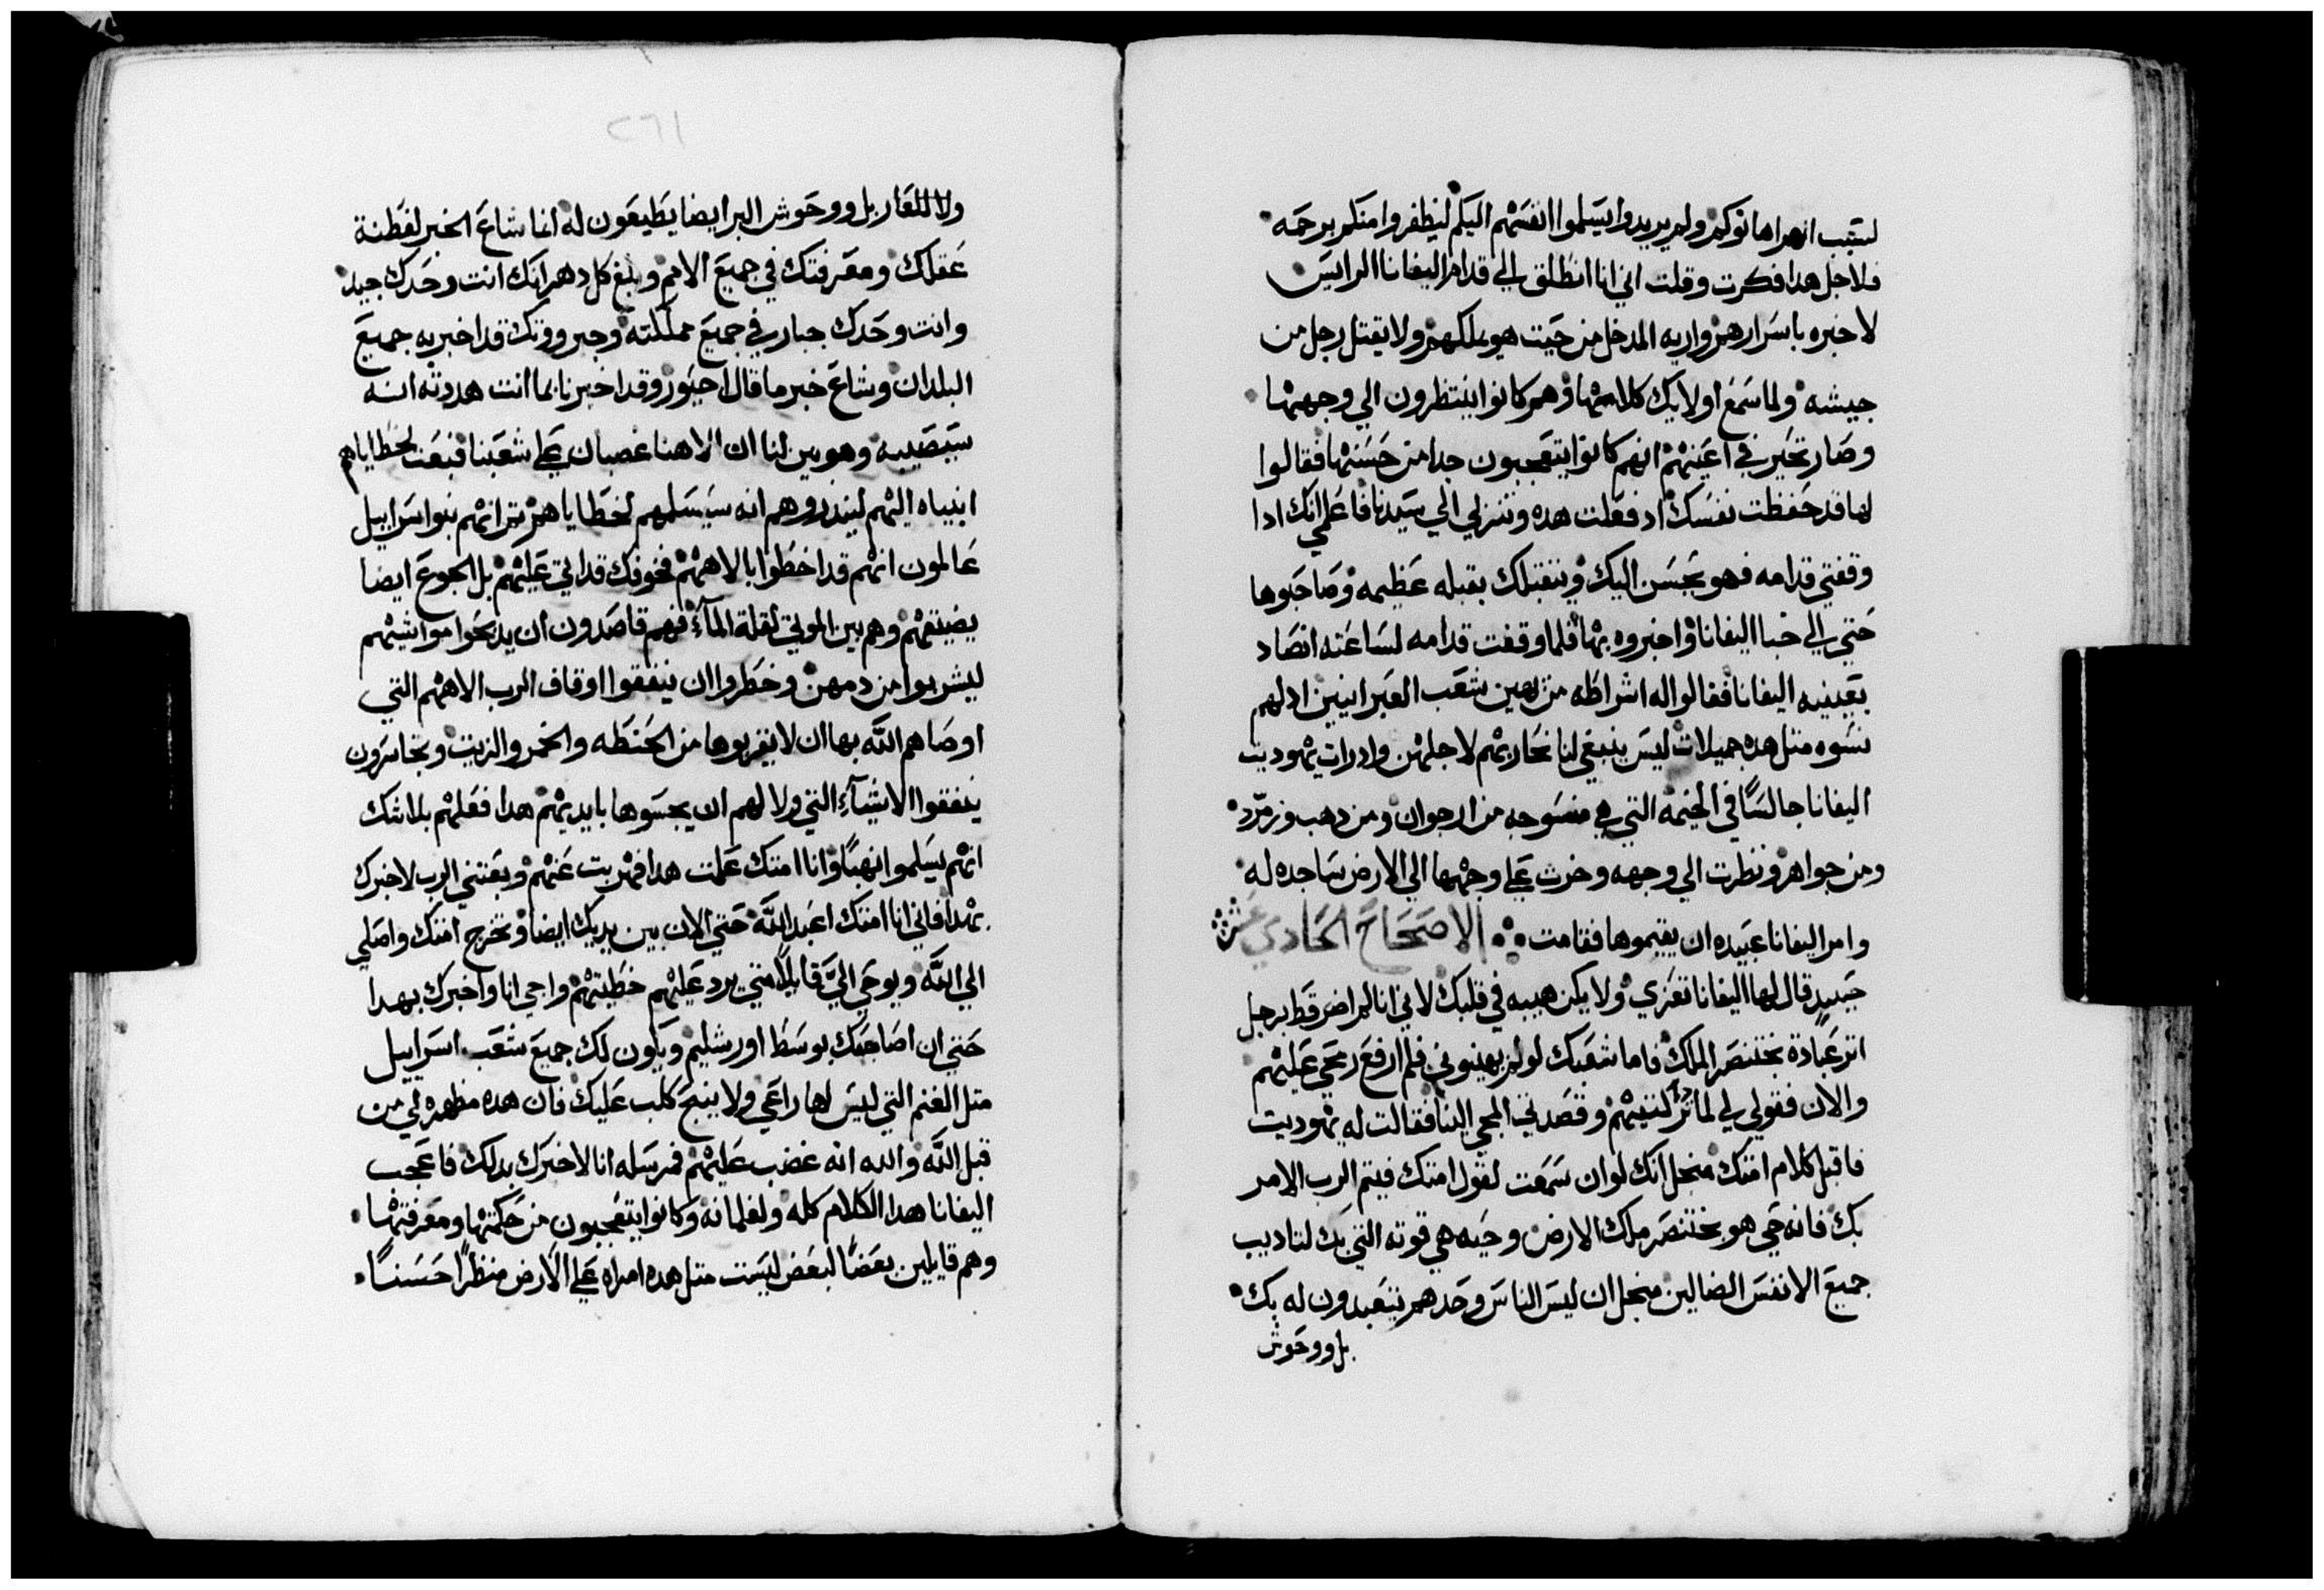 لسبب انهم اهانوكم ولم يريدوا يسلموا انفسهم اليكم ليظفروا منكم برحمه
فلاجل هدا فكرت وقلت اني انا انطلق الي قدام اليفانا الرايس
لاخبره باسرارهم واريه المدخل من حيت هو يملكهم ولا يقتل رجل من
جيشه ولما سمع اولايك كلامها وهم كانوا ينتظرون الي وجهها
وصار تحير في اعينهم انهم كانوا يتعجبون جدا من حسنها فقالوا
لها قد حفظت نفسك اد فعلت هده وتنزلي الي سيدنا فاعلمي انك ادا
وقفتي قدامه فهو يحسن اليك ويتقبلك بقبله عظيمه وصاحبوها
حتي الي خبا اليفانا واخبروه بها فلما وقفت قدامه لساعته انصاد
بعينيه اليفانا فقالوا له اشراطه من يهين شعب العبرانيين اد لهم
نسوه متل هده جميلات ليس ينبغي لنا نحاربهم لاجلهن واد رات يهوديت
اليفانا جالسًا في الخيمه التي هي منسوجه من ارجوان ومن دهب وزمرد
ومن جواهر ونظرت الي وجهه وخرت علي وجهها الي الارض ساجده له
وامر اليفانا عبيده ان يقيموها فقامت الاصحاح الحادي عشر
حينيدٍ قال لها اليفانا تعزي ولا يكن هيبه في قلبك لاني انا لم اضر قط برجل
اتر عبادة بختنصر الملك فاما شعبك لو لم يهينوني فلم ارفع رمحي عليهم
والان فقولي لي لما تركتيهم وقصدتي المجي الينا فقالت له يهوديت
فاقبل كلام امتك منجل انك لو ان سمعت لقول امتك فيتم الرب الامر
بك فانه حي هو بختنصر ملك الارض وحيه هي قوته التي بك لتاديب
جميع الانفس الضالين منجل ان ليس الناس وحدهم يتعبدون له بك
بل ووحوش
٢٦١
ولا للقار بل ووحوش البر ايضا يطيعون له انما شاع الخبر لفطنة
عقلك ومعرفتك في جميع الامم وبلغ كل دهر انك انت وحدك جيد
وانت وحدك جبار في جميع مملكته وجبرووتك قد اخبر به جميع
البلدان وشاع خبر ما قال احيور وقد اخبرنا بما انت هددته انه
سيصيبه وهو بين لنا ان الاهنا غصبان علي شعبنا فبعت لخطاياهم
انبياه اليهم لينذروهم انه سيسلمهم لخطاياهم تم انهم بنوا سراييل
عالمون انهم قد اخطوا بالاههم فخوفك قد اتي عليهم بل الجوع ايضا
يضيقهم وهم بين الموتي لقلة المآء فهم قاصدون ان يدبحوا مواشيهم
ليشربوا من دمهن وخطروا ان ينفقوا اوقاف الرب الاههم التي
اوصاهم الله بها ان لا يقربوها من الحنطه والخمر والزيت وتخاسرون
ينفقوا الاشيآء التي ولا لهم ان يجسوها بايديهم هدا فعلهم بلا شك
انهم يسلموا نهبًا وانا امتك علمت هدا فهربت عنهم وبعتني الرب لاخبرك
بهدا فاني انا امتك اعبد الله حتي الان بين يديك ايضا وتخرج امتك واصلي
الي الله ويوحي اليَّ قايلًا متي يرد عليهم خطيتهم واجي انا واخبرك بهدا
حتي ان اصاحبك بوسط اورشليم ويكون لك جميع شعب اسراييل
متل الغنم التي ليس لها راعي ولا ينبح كلب عليك فان هده مظهره لي من
قبل الله والده انه غضب عليهم فمرسله انا لاخبرك بدلك فاعجب
اليفانا هدا الكلام كله ولغلمانه وكانوا يتعجبون من حكمتها ومعرفتها
وهم قايلين بعضًا لبعض ليست متل هده امراه علي الارض منظرًا حسنًا